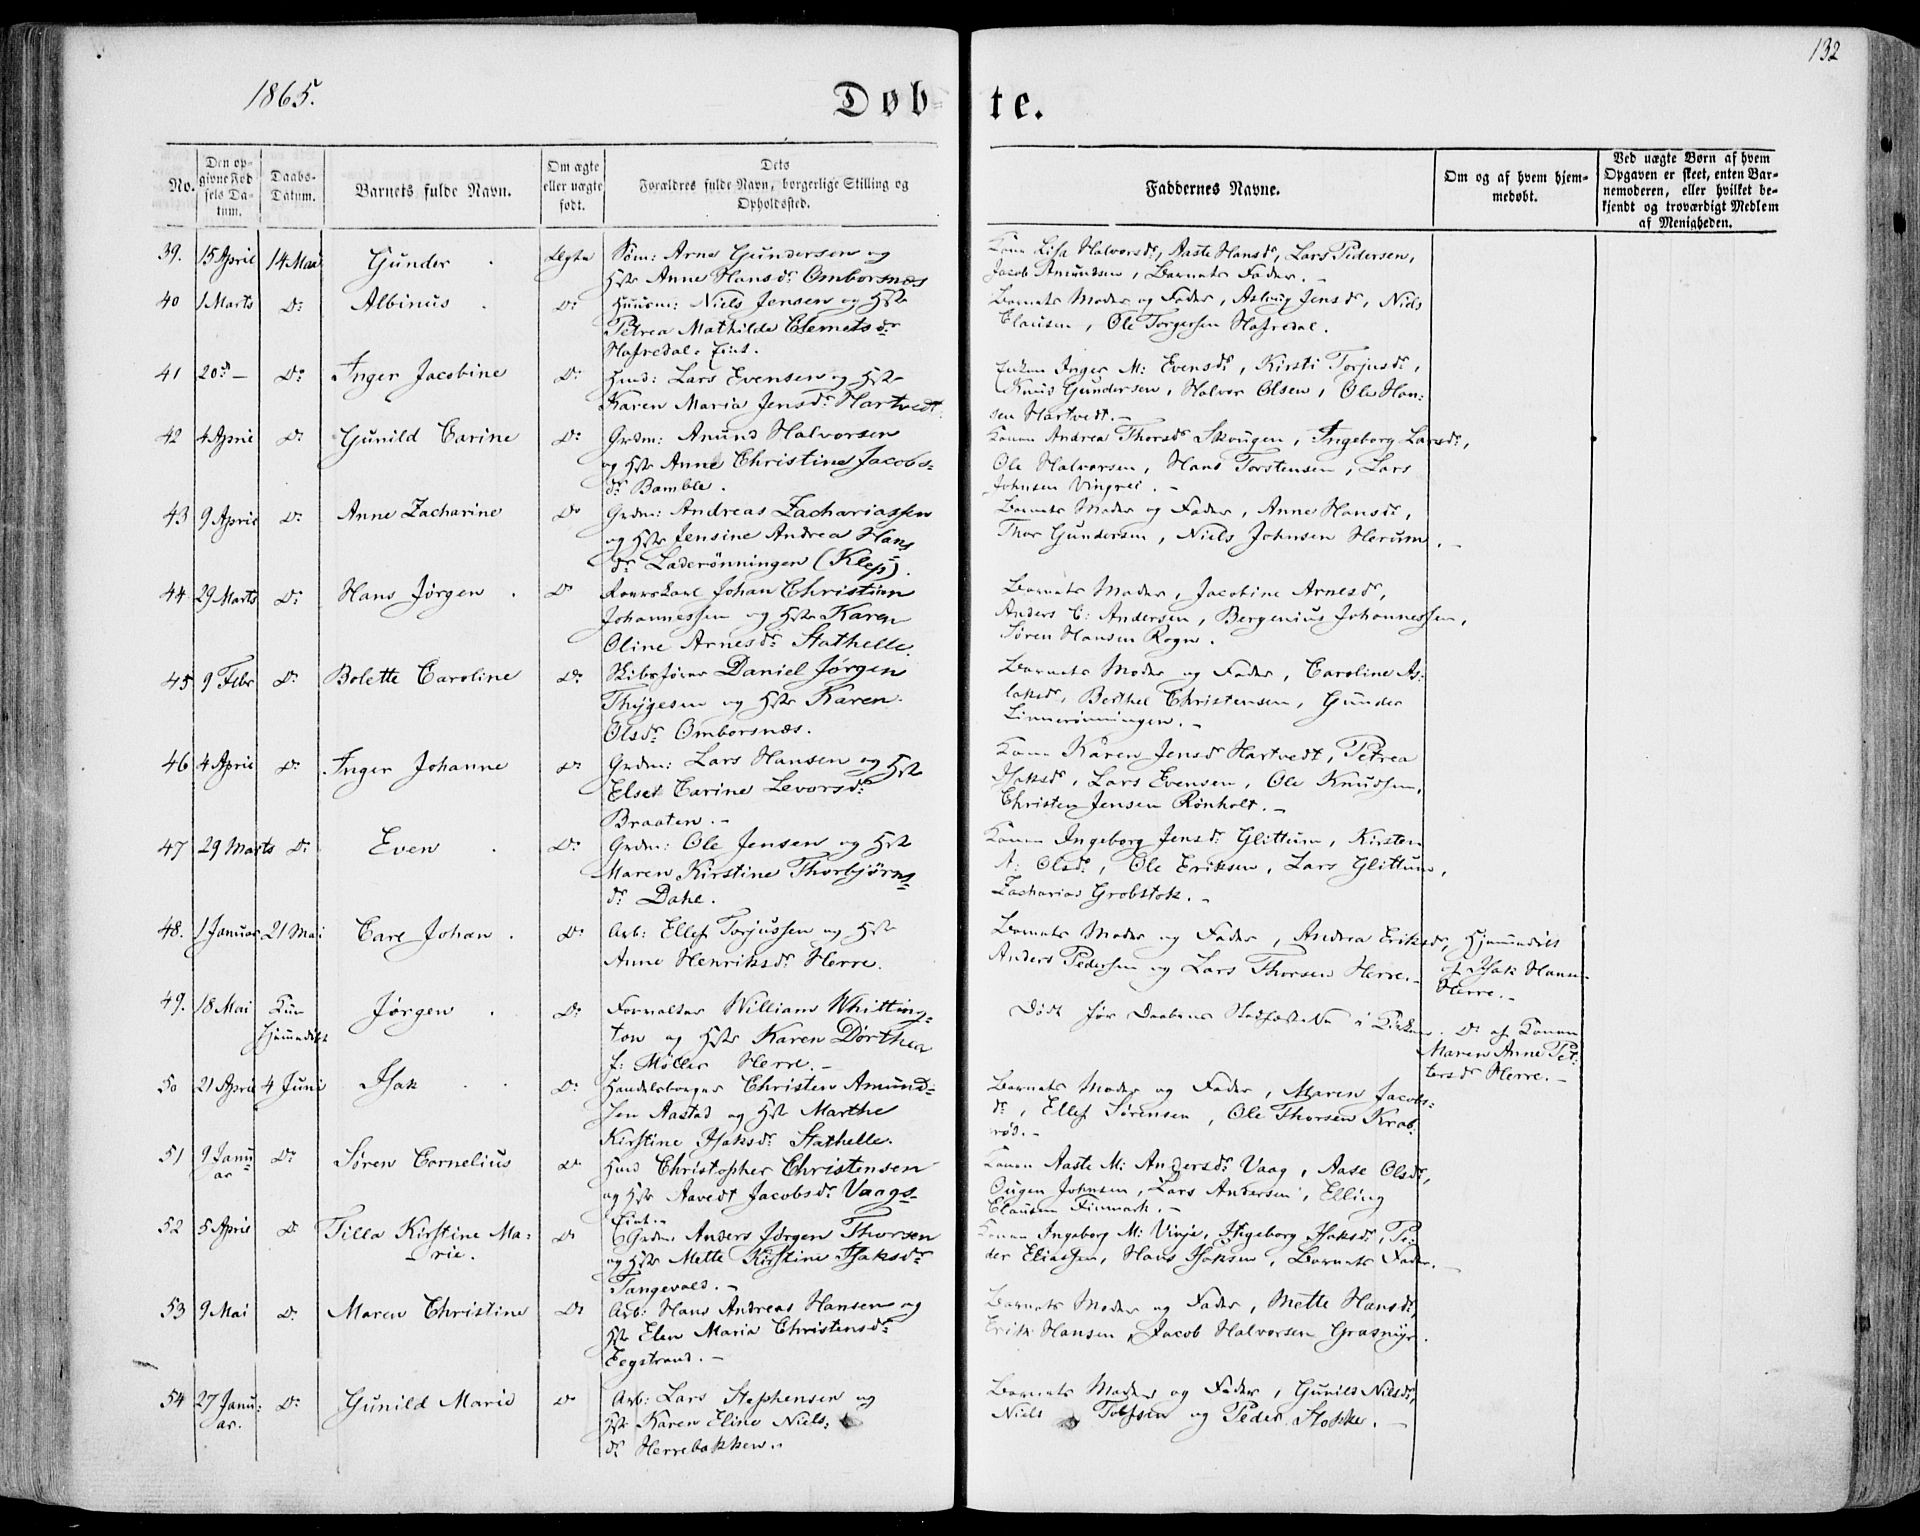 132
1865.
Døb-
te.
No.
Den op-
givne Fød
sels Da-
tum.
Daabs-
Datum.
Barnets fulde Navn.
Om ægte
eller uægte
født.
Dets
Forældres fulde Navn, borgerlige Stilling og
Opholdssted.
Faddernes Navne.
Om og af hvem hjem-
medøbt.
Ved uægte Børn af hvem
Opgaven er skeet, enten Bar-
nemoderen, eller hvilket be-
kjendt og troværdigt Medlem
af Menigheden.
39. 15 April 14 Mai Gunder . Ægte Søm: Arne Gundersen og
Hst Anne Hansdr Omborsnæs
Kone Lisa Halvorsdr, Aaste Hansdr, Lars Pedersen,
Jacob Amundsen, Barnets Fader. -
40 1 Marts Do Albinus . Do Huusm: Niels Jensen og Hst
Petrea Mathilde Clemetsdr
Hafredal. Eint.
Barnets Moder og Fader, Aslaug Jensdr, Niels
Clausen, Ole Torgersen Hafredal.
41 20de - Do Inger Jacobine Do Husd: Lars Evensen og Hst
Karen Maria Jensdr Hartvedt.
Enken Inger M: Evensdr, Kirsti Torjusdr,
Knus Gundersen, Halvor Olsen, Ole Han-
sen Hartvedt. -
42 4 April Do Gunild Carine Do Grdm: Anund Halvorsen
og Hst Anne Christine Jacobs-
dr Bamble.
Konen Andrea Thorsdr Skougen, Ingeborg Larsdr,
Ole Halvorsen, Hans Torstensen, Lars
Johnsen Vingrei. -
43 9 April Do Anne Zacharine Do Grdm: Andreas Zachariassen
og Hst Jensine Andrea Hans
dr Laderønningen (Klep).
Barnets Moder og Fader, Anne Hansdr,
Thor Gundersen, Niels Johnsen Herum. -
44 29 Marts Do Hans Jørgen . Do Johan Christian
Johannessen og Hst Karen
Oline Arnesdr Stathelle.
Barnets Moder, Jacobine Arnesdr,
Anders C: Andersen, Bergenius Johannessen,
Søren Hansen Rogn.
45 9 Febr Do Bolette Caroline Do Skibsfører Daniel Jørgen
Thygesen og Hst Karen
Olsdr Omborsnæs.
Barnets Moder og Fader, Caroline As-
laksdr, Berthel Christensen, Gunder
Linnerønningen. -
46 4 April Do Inger Johanne Do Grdm: Lars Hansen og Hst
Elset Carine Levorsdr
Braaten. -
Kone Karen Jensdr Hartvedt, Petrea
Isaksdr, Lars Evensen, Ole Knussen,
Christen Jensen Rønholt. -
47 29 Marts Do Even . Do Grdm: Ole Jensen og Hst
Maren Kirstine Thorbjørns-
dr Dahl.
Konen Ingeborg Jensdr Glittum, Kirsten
A: Olsdr, Ole Eriksen, Lars Glittum,
Zacharias Grobstok. -
48. 1 Januar 21 Mai Carl Johan . Do Arb: Ellef Torjussen og Hst
Anne Henriksdr Herre.
Barnets Moder og Fader, Andrea Eriksdr,
Anders Pedersen og Lars Thorsen Herre. -
Hjemmedøbt
af Isak Hansen
Herre. -
49. 18 Mai Kun
hjemmedøbt Jørgen . Do Forvalter William Whitting-
ton og Hst Karen Dorthea
f: Møller Herre. -
Død før Daabens Stadfæstelse i Kirken.
Do af Konen
Maren Anne Pet-
tersdr Herre. -
50 21 April 4 Juni Isak . . Do Handelsborger Christen Amund-
sen Aastad og Hst Marthe
Kirstine Isaksdr Stathelle.
Barnets Moder og Fader, Maren Jacobs-
dr, Ellef Sørensen, Ole Thorsen Krab-
rød. -
51 9 Janu-
ar Do Søren Cornelius Do Husd Christopher Christensen
og Hst Aavedt Jacobsdr Vaags-
Eint. -
Konen Aaste M: Andersdr Vaag, Aase Olsdr,
Ougen Johnsen, Lars Andersen, Elling
Clausen Finmark. -
52 5 April Do Tilla Kirstine Ma-
rie. Do Grdm: Anders Jørgen Thorsen
og Hst Mette Kirstine Isaksdr
Tangevald. -
Konen Ingeborg M: Vinje, Ingeborg Isaksdr, Pe-
der Eliassen, Hans Isaksen, Barnets Fader. -
53 9 Mai Do Maren Christine Do Arb: Hans Andreas Hansen og
Hst Elen Maria Christensdr
Eegstrand. -
Barnets Moder og Fader, Mette Hansdr,
Erik Hansen, Jacob Halvorsen Grasmyr.
54 27 Janu-
ar. Do Gunild Marie Do Arb: Lars Stephensen og
Hst Karen Eline Niels-
dr Herrebakken. -
Barnets Moder og Fader, Gunild Nilsdr,
Niels Tolfsen og Peder Stokke. -